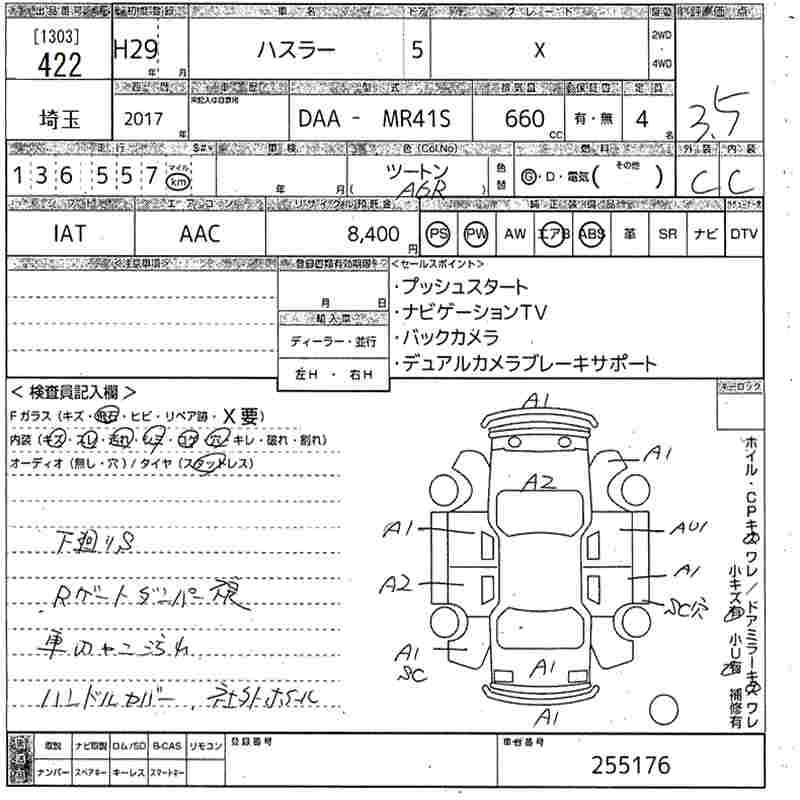 出品番号 初度登録 車名 ドア グレード 駆動 評価点
[1303] 422 H29 年 月 ハスラー 5 X 2WD・4WD 3.5
年間 車歴 型式 排気量 保証書 定員
埼玉 2017 年 未記入は自家用 DAA - MR41S 660 CC 有・無 4 名
走行 S#* 車検 色(Col.No) 燃料 外装 内装
136,557 マイル km 年 月 ツートン ( A6R ) 色替 G・D・電気( その他 ) C C
シフト エアコン リサイクル預託金 純正装備品
IAT AAC 8,400 円 PS PW AW エアB ABS 革 SR ナビ DTV
注意事項 登録書類有効期限 <セールスポイント>
月 日
・プッシュスタート
・ナビゲーションTV
輸入車
・バックカメラ
ディーラー・並行
・デュアルカメラブレーキサポート
左H ・ 右H
<検査員記入欄>
キーロック
Fガラス(キズ・飛石・ヒビ・リペア跡・X要)
内装(キズ・スレ・汚れ・シミ・コゲ・穴・キレ・破れ・割れ)
オーディオ(無し・穴)/タイヤ(スタッドレス)
下廻りS
Rゲートダンパー
車内ヤニ汚れ
ハンドルカバー、社外ホイル
A1
A1
A2
A1
AU1
A2
A1
SC穴
A1
SC
A1
A1
ホイル・CPキズワレ/ドアミラーキズワレ
小キズ有 小U有 補修有
取説 ナビ取説 ロム/SD B-CAS リモコン 登録番号 車台番号
ナンバー スペアキー キーレス スマートキー 255176